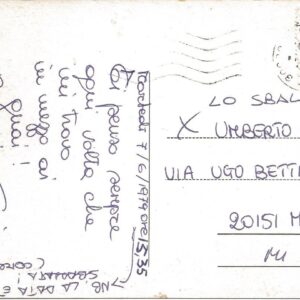 Martedì 7/6/1977 ore 15,35
Ti penso sempre
ogni volta che
mi trovo
in mezzo ai
guai!
NB. LA DATA È
SBAGLIATA!
LO SBAL
X UMBERTO
VIA UGO BETTI
20151 M
MI